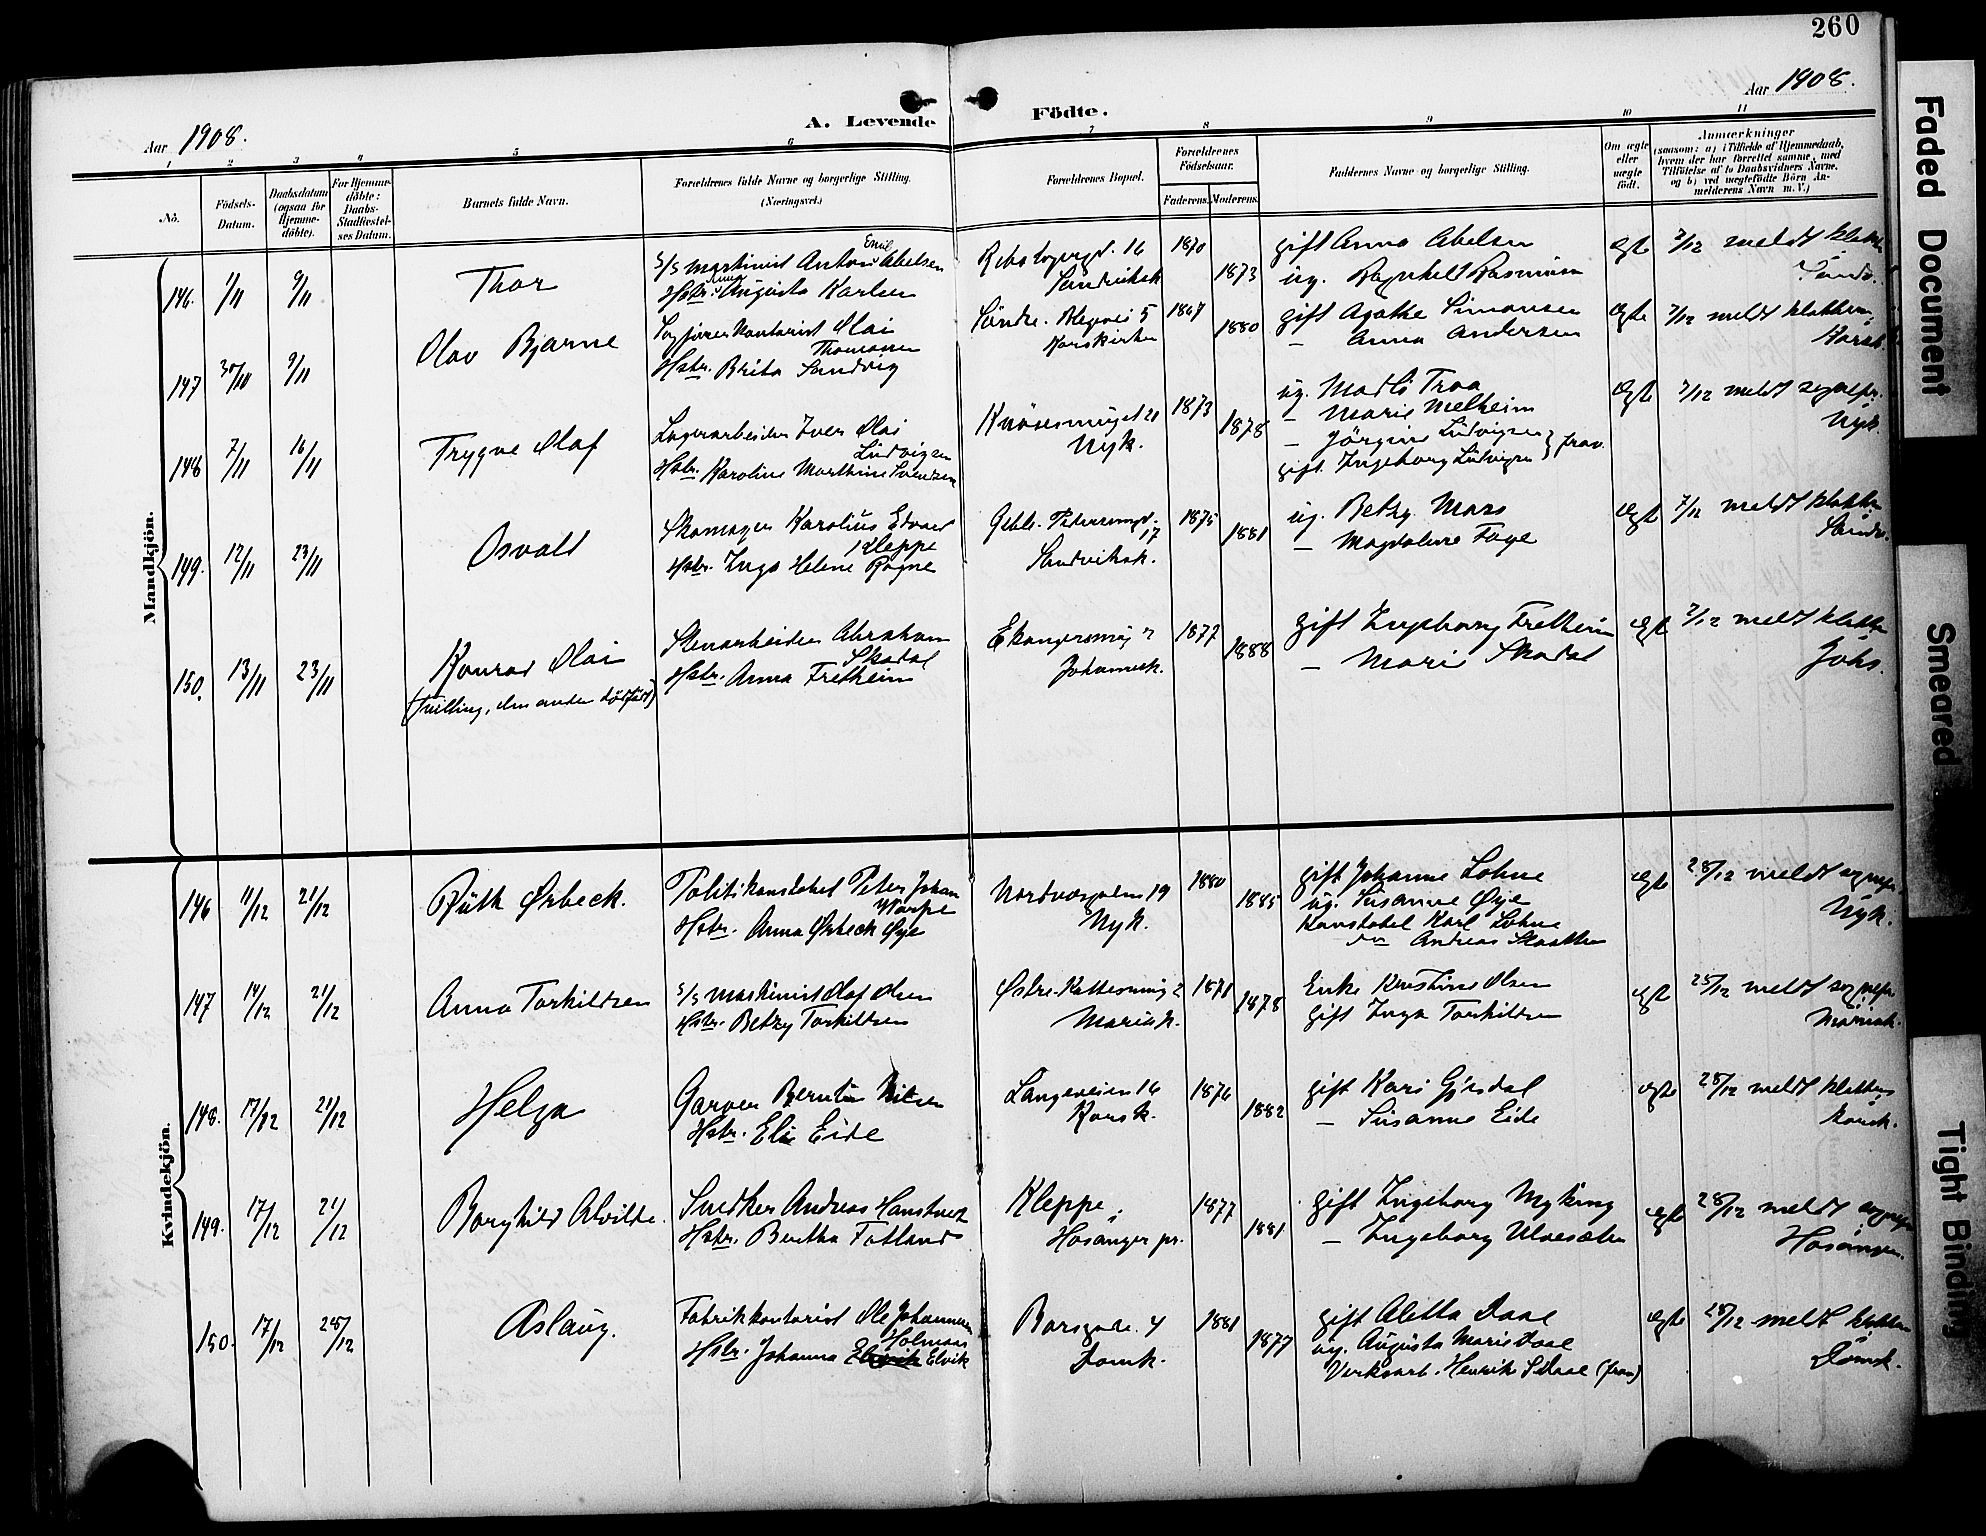 260
Aar 1908.
A. Levende Födte.
Aar 1908.
1 2 3 4 5 6 7 8 9 10 11
No.
Födsels-
Datum.
Daabsdatum
(ogsaa for
Hjemme-
döbte).
For Hjemme-
döbte:
Daabs-
Stadfæstel-
ses Datum.
Barnets fulde Navn.
Forældrenes fulde Navne og borgerlige Stilling.
(Næringsvei.)
Forældrenes Bopæl.
Forældrenes
Födselsaar.
Faderens. Moderens.
Faddernes Navne og borgerlige Stilling.
Om ægte
eller
uægte
født.
Anmærkninger
(saasom: a) i Tilfælde af Hjemmedaab,
hvem der har forrettet samme, med
Tilföielse af to Daabsvidners Navne,
og b) ved uegtefödte Börn An-
melderens Navn m. V.)
Mandkjön.
146. 1/11 9/11
Thor
S/S maskinist Anton Emil Abelsen
Hstr. Anna Augusta Karlsen
16
Sandviksk
1870
1873
gift Anna Abelsen
ug. Ragnhild Rasmussen
ægte
7/12 meldt klokk.
Sandv.
147 30/10 9/11
Olav Bjarne
Sagførerkontorist Olai
Thomassen
Hstr. Brita Sandvig
Söndre. Blegevei 5
Korskirken
1880
gift Agathe Simonsen
— Anna Andersen
ægte
7/12 meldt klokkeren
Korsk.
148 7/11 16/11
Trygve Olaf
Lagerarbeider Iver Olai
Ludvigsen
Hstr. Karoline Marthine Svendsen
Knøsesmuget 21
Nyk.
1873
1878
ug. Madli Traa
— Marie Melheim
— Jørgine Ludvigsen
gift. Ingeborg Ludvigsen } frav.
ægte
7/12 meldt sognepr.
Nyk.
149. 12/11 23/11
Osvald
Skomager Karolius Edvard
Kleppe
Hstr. Inga Helene Røgne
Gebh. Petersensgt.
17
Sandviksk.
1875
1881
ug. Betzy Mars
— Magdalene Faye
ægte
7/12 meldt klokk
Sandv.
150. 13/11 23/11
Konrad Olai
(Tvilling, den anden dødfødt)
Stenarbeider Abraham
Skadal
Hstr. Anna Fretheim
Ekangersmug 7
Johannesk.
1877
1888
gift Ingeborg Fretheim
— Marie Skadal
ægte
7/12 meldt klokk
Johs.
Kvindekjön.
146 11/12 21/12
Ruth Ørbeck.
Politikonstabel Peter Johan
Warpe
Hstr. Anna Ørbeck Øye
19
Nyk.
1880
1885
gift Johanne Lohne
ug. Susanne Øye
Konstabel Karl Lohne
do Andreas
ægte
28/12 meldt sognepr.
Nyk.
147 14/12 21/12
Anna Torkildsen
S/S maskinist Olaf Olsen
Hstr. Betzy Torkildsen
Østre. Kattesmug 2
Mariak.
1878
1878
Enke Kirstine Olsen
gift Inga Torkildsen
ægte
28/12 meldt sognepr
Mariak.
148. 17/12 21/12
Helga
Garver Bernt Nilsen
Hstr. Eli Eide
Langeveien 16
Korsk.
1876
1882
gift Kari Gjesdal
— Susanne Eide
ægte
28/12 meldt klokkeren
Korsk.
149. 17/12 21/12
Borghild Alvilde.
Snedker Andreas Hanstveit
Hstr. Bertha Fotland
Kleppe,
Hosanger pr.
1877
1881
gift Ingeborg Myking
— Ingeborg Ulvesæter
ægte
28/12 meldt sognepr
Hosanger.
150. 17/12 25/12
Aslaug.
Fabrikkontorist Ole Johannessen
Holman
Hstr. Johanna Elvik
Barsgade. 4
Domk.
1881
1877
gift Aletta Daae
ug. Augusta Marie Daae
Verksarb. Henrik S Daae (frav)
ægte
28/12 meldt klokken
Domk.
Faded Document
Smeared
Tight Binding